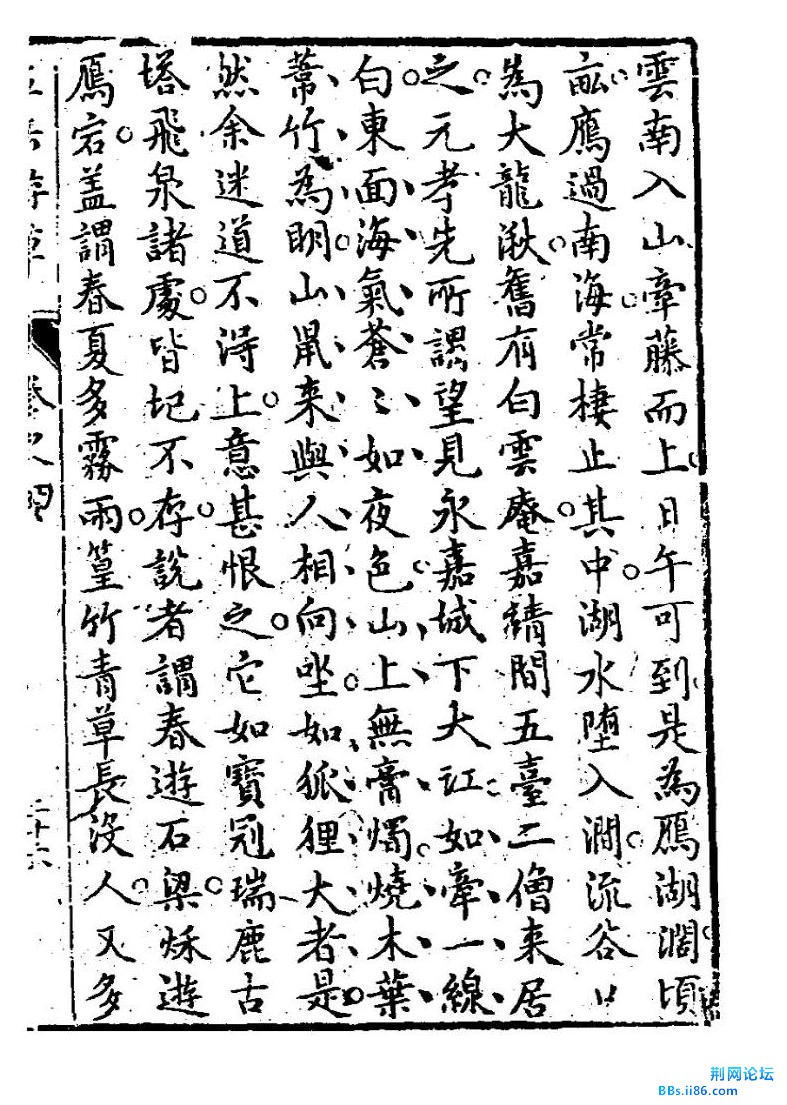 雲南入山牵藤而上日午可到是為鴈湖濶頃
畝鴈過南海常棲止其中湖水墮入澗流谷口
為大龍湫舊有白雲庵嘉靖間五臺二僧来居
之元孝先所謂望見永嘉城下大江如牵一線
白東面海氣蒼〻如夜色山上無膏燭燒木葉
葦竹為明山鼠来與人相向㘴如狐狸大者是
然余迷道不得上意甚恨之它如寳冠瑞鹿古
塔飛泉諸處皆圮不存說者謂春遊石梁秋遊
鴈宕盖謂春夏多霧雨篁竹青草長没人又多
五岳游草
卷之四
二十六
荆网论坛
BBs.ii86.com